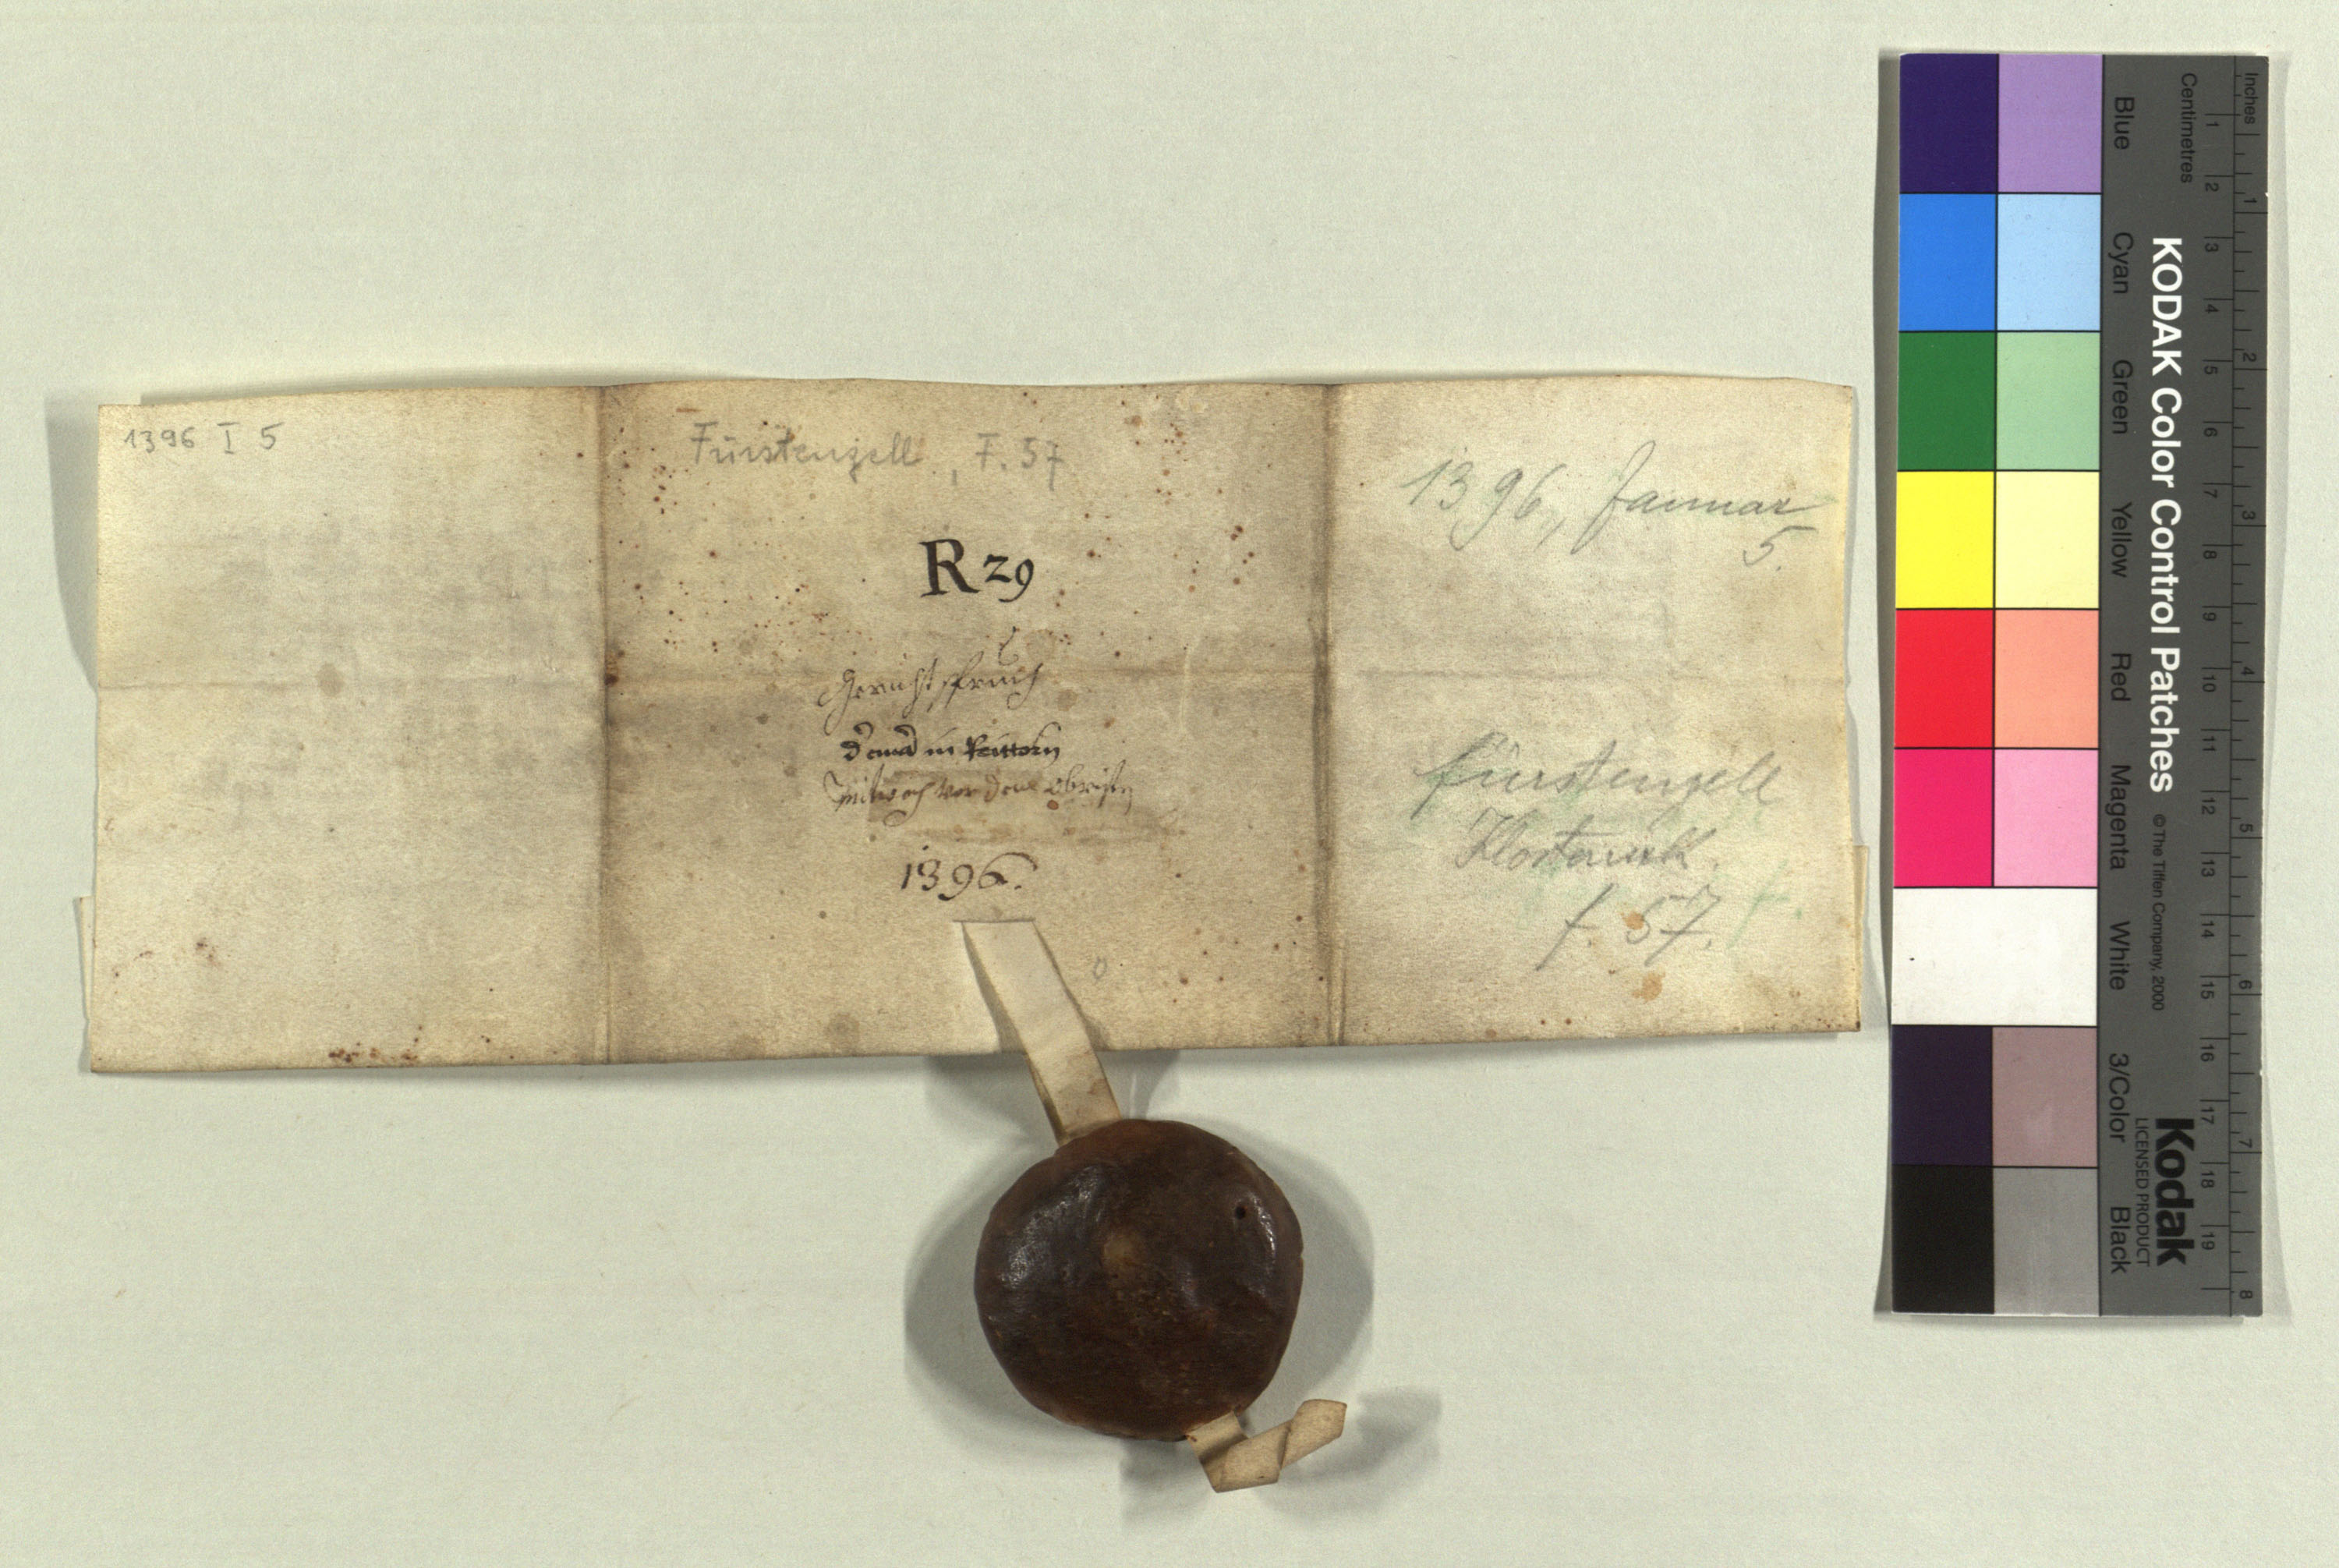 1396 I 5
Fürstenzell, F. 57
R 29
Gerichtspruch
in
Mitwoch vor dem Obristen
1396.
1396, Januar
5.
Fürstenzell
Klosterurk.
f. 57.
Inches
Centimetres
1 2 3 4 5 6 7 8
1 2 3 4 5 6 7 8 9 10 11 12 13 14 15 16 17 18 19
KODAK Color Control Patches
©The Tiffen Company, 2000
Kodak
LICENSED PRODUCT
Blue
Cyan
Green
Yellow
Red
Magenta
White
3/Color
Black